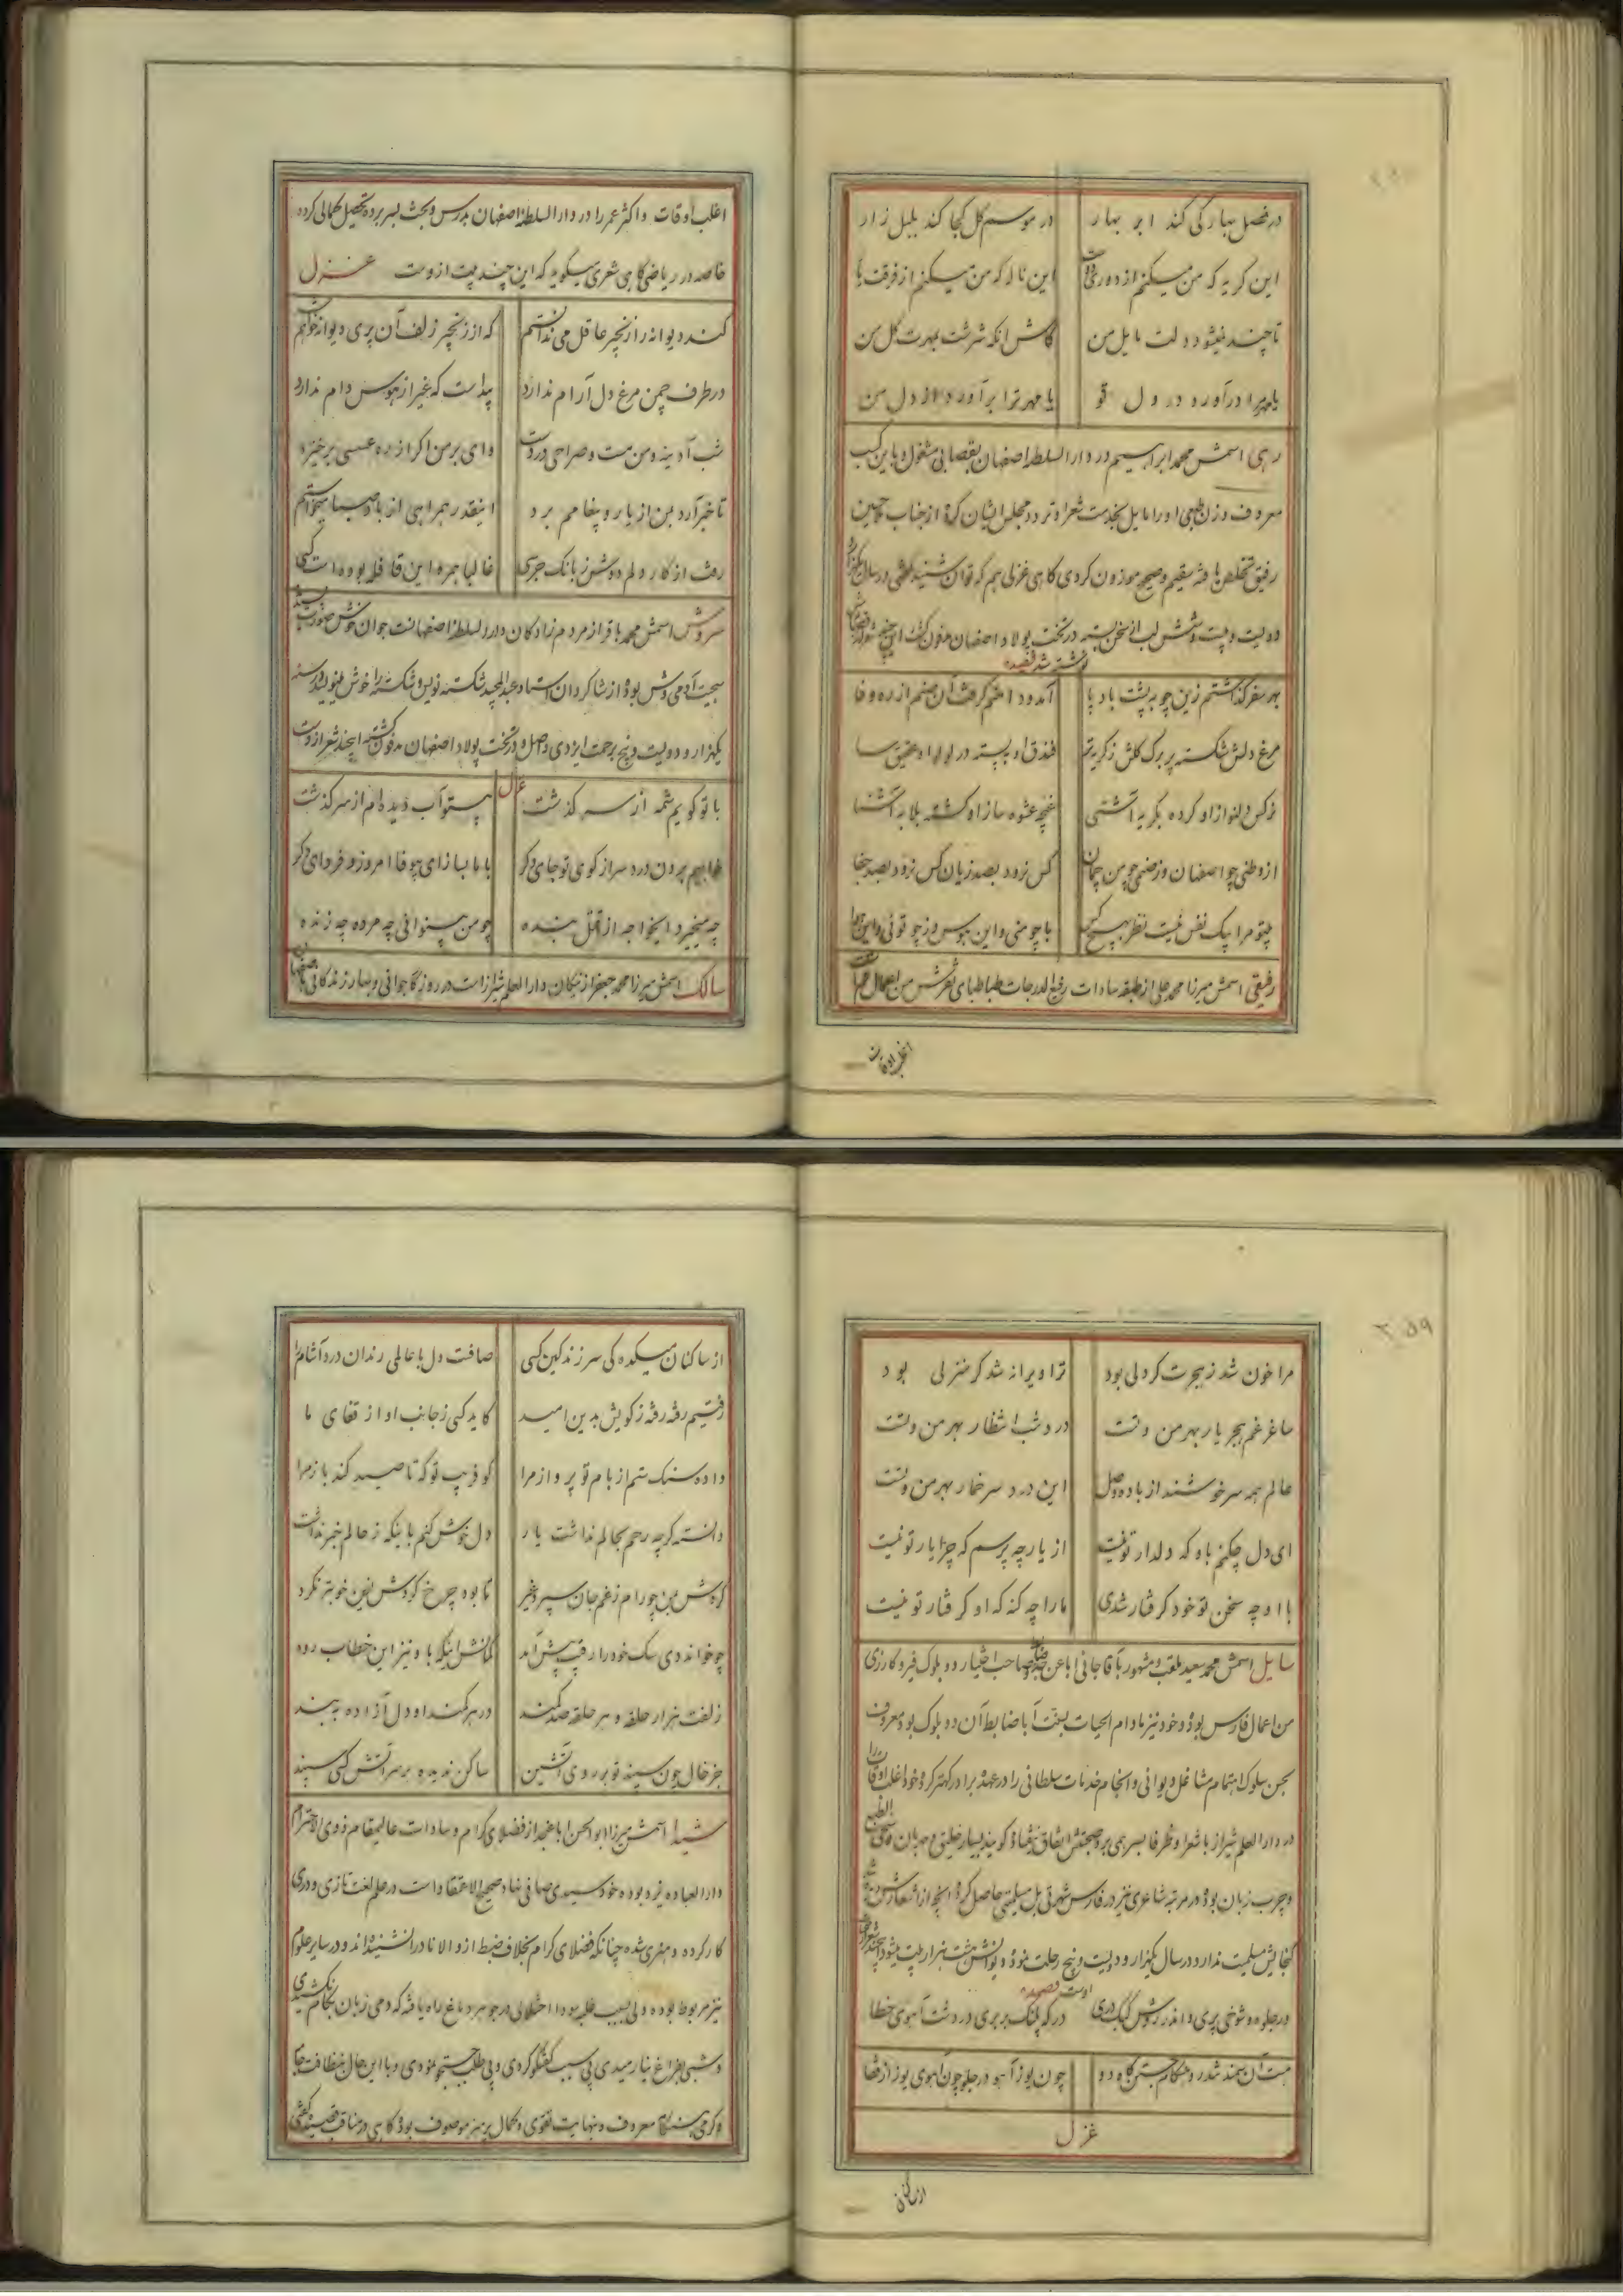 در فصل بهار کی کند ابر بهار در موسم گل کجا کند بلبل زار
این گریه که من میکنم از دوری دوست این ناله که من میکنم از فرقت یار
تا چند نمیشود دلت مایل من کاش انکه سرشت بمهرت گل من
یا مهر مرا درآورد در دل تو یا مهر ترا برآورد از دل من
رهی اسمش محمد ابراهیم در دار السلطنه اصفهان بقصابی مشغول و باین کسب
معروف وزن طبعی او را مایل بخدمت شعرا و تردد مجلس ایشان کرده از جناب ملا حسین
رفیق تخلص یافته سقیم و صحیح موزون کردی گاهی غزلی هم که توان شنید گفتی در سال یکهزار
دویست و بیست و شش لب از سخن بسته در تخت پولاد اصفهان مدفون گشت این چند شعر از قصاید
نوشته شد قصیده
بهر سفر گذاشتم زین چو به پشت باد پا آمد و دامنم گرفت آن صنم از ره وفا
مرغ دلش شکسته پر برگ گلش ز گریه تر فندق او بسته در لولو او عقیق سا
نرگس دلنواز او کرده بگریه آشتی غنچه عشوه ساز او گشته بلابه آشنا
از وطنی چو اصفهان وز صنمی چو من چمان کس نرود بصد زیان کس نرود بصد جفا
بیتو مرا بیک نفس نیست نظر بهیچ کس با چو منی و این هوس وز چو توئی و این هوا
رفیقی اسمش میرزا محمد علی از طبقه سادات رفیع الدرجات طباطبای نطنزش من اعمال اصفهان است
اغلب اوقات
اغلب اوقات و اکثر عمر را در دار السلطنه اصفهان بدرس و بحث بسر برده تحصیل کمالی کرده
خاصه در ریاضی گاهی شعری میگوید که این چند بیت از وست غزل
کند دیوانه را زنجیر عاقل می ندانستم که از زنجیر زلف آن پری دیوانه خواهم شد
در طرف چمن مرغ دل آرام ندارد پیداست که غیر از هوس دام ندارد
شب آدینه و من مست و صراحی در دست وای بر من اگر از ره عسسی برخیزد
تا خبر آرد بمن از یار و پیغامم برد اینقدر همراهی از باد صبا میخواستم
رفت از کار دلم دوش ز بانک جرسی غالبا همره این قافله بوده است کسی
سروش اسمش محمد باقر از مردم زادگان دار السلطنه اصفهانست جوان خوش صورت پسندیده
سجیت آدمی وش بوده از شاگردان استاد عبدالمجید شکسته نویس و شکسته را خوش مینویسد در سنه
یکهزار و دویست و پنج برحمت ایزدی واصل و در تخت پولاد اصفهان مدفون گشته این چند شعر از وست
غزل
با تو گویم شمه از سرگذشت بیتو آب دیده ام از سر گذشت
خواهیم برون درد سر از کوی تو جای دگر با ما بسازای بیوفا امروز و فردای دگر
چه میخیزد ایخواجه از قتل بنده چو من بینوائی چه مرده چه زنده
سالک اسمش میرزا محمد جعفر از نیکان دار العلم شیراز است در روزگار جوانی و بهار زندگانی باصفهان
۲۵۹
مرا خون شد ز هجرت گر دلی بود ترا ویرانه شد گر منزلی بود
ساغر غم هجر یار بهر من و تست درد شب انتظار بهر من و تست
عالم همه سرخوشند از باده وصل این درد سر خمار بهر من و تست
ای دل چکنم باو که دلدار تو نیست از یار چه پرسم که چرا یار تو نیست
با او چه سخن تو خود گرفتار شدی ما را چه گنه که او گرفتار تو نیست
سایل اسمش محمد سعید ملقب و مشهور بآقا جانی ابا عن جد صاحب اختیار دو بلوک فیرو کارزی
من اعمال فارس بوده و خود نیز مادام الحیات بسنت آبا ضابط آن دو بلوک بوده معروف
بحسن سلوک اهتمام مشاغل دیوانی و انجام خدمات سلطانی را در عهده برادر کهتر کرده خود اغلب اوقات را
در دار العلم شیراز با شعرا و ظرفا بسر می برد صحبتش اتفاق نیفتاد گویند بسیار خلیق و مهربان فصیح الطبع
و چرب زبان بوده در مرتبه شاعری نیز در فارس شهرتی بل مسلمیتی حاصل کرده آنچه از اشعارش دیده شد
گنجایش مسلمیت ندارد در سال یکهزار و دویست و پنج رحلت نموده دیوانش هشت هزار بیت میشود این چند شعر از
اوست قصیده
در جلوه و شوخی پری و اندر روش کبک دری در که پلنگ بربری در دشت آهوی خطا
هست آن سمند تندرو هنگام جستن گاه دو چون یوز آهو در جلو چون آهوی یوز از قفا
غزل
از ساکنان
از ساکنان میکده کی سر زند کین کسی صافست دل با عالمی رندان درد آشام را
رفتیم رفته رفته ز کویش بدین امید کاید کسی ز جانب او از قفای ما
داده سنک ستم از بام تو پرواز مرا کو فریب تو که تا صید کند باز مرا
دانسته گرچه رحم بحالم نداشت یار دل خوش کنم باینکه ز حالم خبر نداشت
گردش بین چو رام ز غم جان سپرد غیر تا بود چرخ گردش ازین خوبتر نکرد
چو خواند دی سک خود را رقیب پیش آمد گمانش اینکه با و نیز این خطاب رود
زلفت هزار حلقه و هر حلقه صد کمند در هر کمند او دل آزاده به بند
جز خال چون سپند تو بر روی آتشین ساکن ندیده بر سر آتش کسی سپند
شیدا اسمش میرزا ابوالحسن ابا عن جد از فضلای کرام و سادات عالیمقام ذوی الاحترام
دار العباده یزد بوده خود سیدی صافی نهاد صحیح الاعتقاد است در علم لغت تازی و دری
کار کرده و هنری شده چنانکه فضلای کرام بخلاف ضبط از و الا نادرا نشنیده اند و در سایر علوم
نیز مربوط بوده ولی بسبب غلبه سودا اختلالی در جوهر دماغ راه یافته که دمی زبان بکام نکشیدی
و شبی بفراغ نیارمیدی بی سبب گفتگو کردی و بی طلب جستجو نمودی و با این حال بنظافت جامه
و گرمی هنگامه معروف و نهایت تقوی و کمال پرهیز موصوف بوده گاهی در مناقب قصیده گفتی